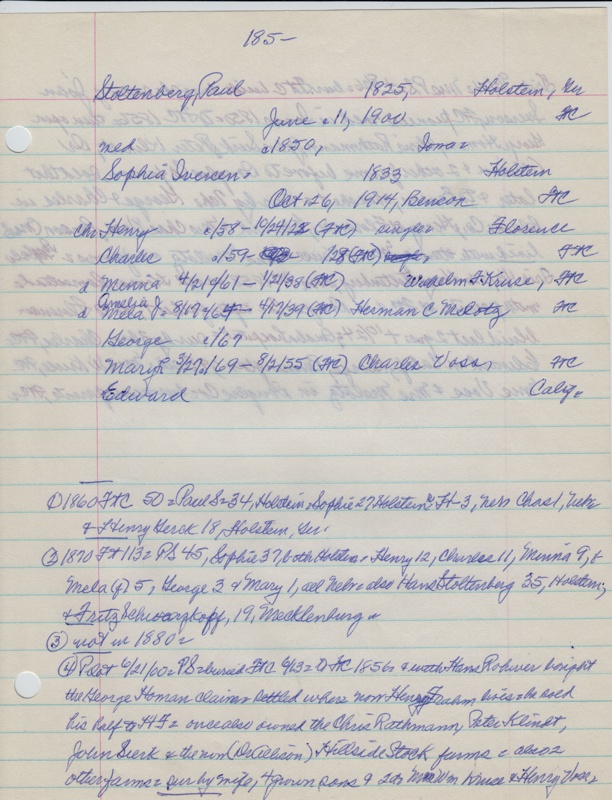 185-
Stoltenberg, Paul 1825, Holstein, Ger
June 11, 1900 FC
med c1850, Iowa
Sophia Iversen 1833 Holstein
Oct 26, 1914, Benson FC
Chr Henry c/58 - 10/24/22 (FC) single Florence
Charles c/59 - 1/28 (FC) FC
d Minna 4/21/61 - 1/21/38 (FC) Wilhelm F Kruse, FC
Amelia J.
d Mela 8/17/64 - 4/17/39 (FC) Herman C McLotz FC
George c/67
Mary L 3/27/69 - 8/2/55 (FC) Charles Voss, FC
Edward Calif
(1) 1860 F#C 50 = Paul S = 34, Holstein, Sophie 27 Holstein, H-3, Neb Chas 1, Neb
& Henry Gerck 18, Holstein, Ger.
(2) 1870 F#113 = PS 45, Sophie 37, both Holstein, Henry 12, Charles 11, Minna 9, &
Mela (f) 5, George 3 & Mary 1, all Neb = also Hans Stoltenberg 35, Holstein;
& Fritz Schwarzkoff, 19, Mecklenburg
(3) not in 1880 =
(4) P dat 6/21/60 = PS = buried FC 6/13 = to FC 1856 = & with Hans Rohwer bought
the George Homan claim = settled where now Henry Frahm lives = he sold
his half to HF = once also owned the Chris Rathmann, Peter Klindt,
John Sierk & the now (Dr Allison) Hillside Stock farms = also 2
other farms = sur by wife, 4 grown sons & 2 ds Mrs Wm Kruse & Henry Voss,